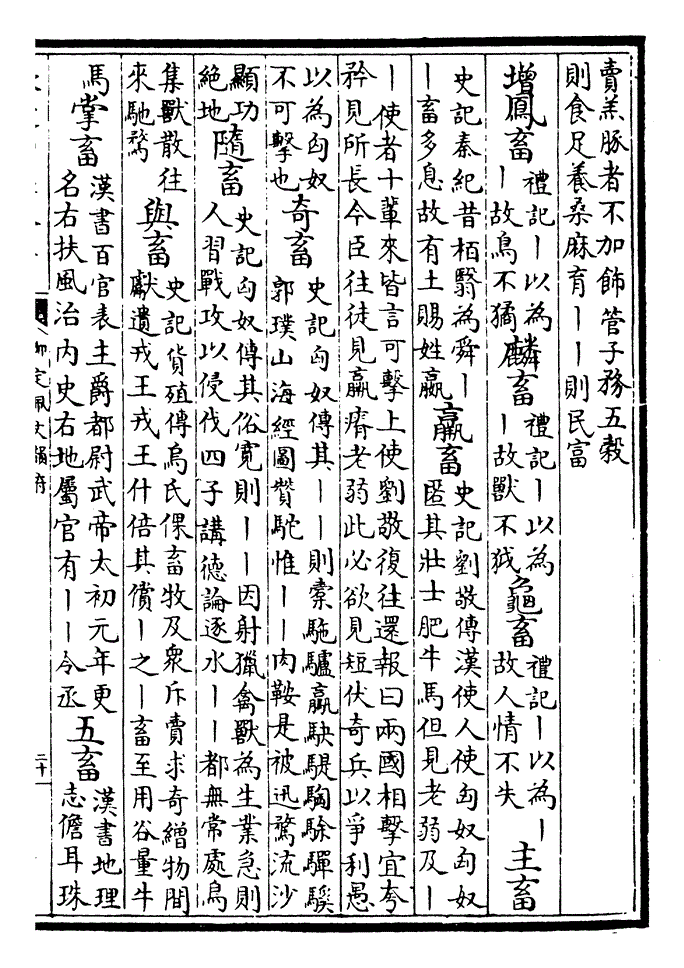 賣羔豚者不加飾管子務五穀
則食足養桑麻育丨丨則民富
增鳳畜
禮記丨以為
丨故鳥不獝
麟畜
禮記丨以為
丨故獸不狘
龜畜
禮記丨以為丨
故人情不失
主畜
史記秦紀昔栢翳為舜丨
丨畜多息故有土賜姓嬴
羸畜
史記劉敬傳漢使人使匈奴匈奴
匿其壯士肥牛馬但見老弱及丨
丨使者十輩來皆言可擊上使劉敬復往還報曰兩國相擊宜夸
矜見所長今臣往徒見羸瘠老弱此必欲見短伏奇兵以爭利愚
以為匈奴
不可擊也
奇畜
史記匈奴傳其丨丨則橐駞驢驘駃騠騊駼驒騱
郭璞山海經圖贊駝惟丨丨肉鞍是被迅騖流沙
顯功
絕地
隨畜
史記匈奴傳其俗寛則丨丨因射獵禽獸為生業急則
人習戰攻以侵伐四子講德論逐水丨丨都無常處鳥
集獸散往
來馳騖
與畜
史記貨殖傳烏氏倮畜牧及衆斥賣求奇繒物間
獻遺戎王戎王什倍其償丨之丨畜至用谷量牛
馬掌畜
漢書百官表主爵都尉武帝太初元年更
名右扶風治内史右地屬官有丨丨令丞
五畜
漢書地理
志儋耳珠
御定佩文韻府
二十